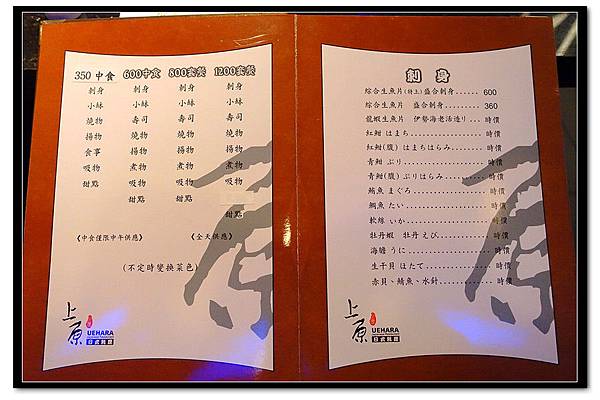 350 中食 600中食 800套餐 1200套餐
刺身 刺身 刺身 刺身
小缽 小缽 小缽 小缽
燒物 壽司 壽司 壽司
揚物 燒物 燒物 燒物
食事 揚物 揚物 揚物
吸物 煮物 煮物 煮物
甜點 吸物 吸物 吸物
甜點 甜點
甜點
《中食僅限中午供應》 《全天供應》
(不定時變換菜色)
上原
UEHARA
日式料理
刺身
綜合生魚片(特上)盛合刺身...... 600
綜合生魚片 盛合刺身......... 360
龍蝦生魚片 伊勢海老活造り... 時價
紅魽 はまち................ 時價
紅魽(腹) はまちはらみ........ 時價
青魽 ぶり.................. 時價
青魽(腹) ぶりはらみ.......... 時價
鮪魚 まぐろ................ 時價
鯛魚 たい.................. 時價
軟絲 いか.................. 時價
牡丹蝦 牡丹えび............ 時價
海膽 うに.................. 時價
生干貝 ほたて.............. 時價
赤貝、鯖魚、水針............ 時價
上原
UEHARA
日式料理